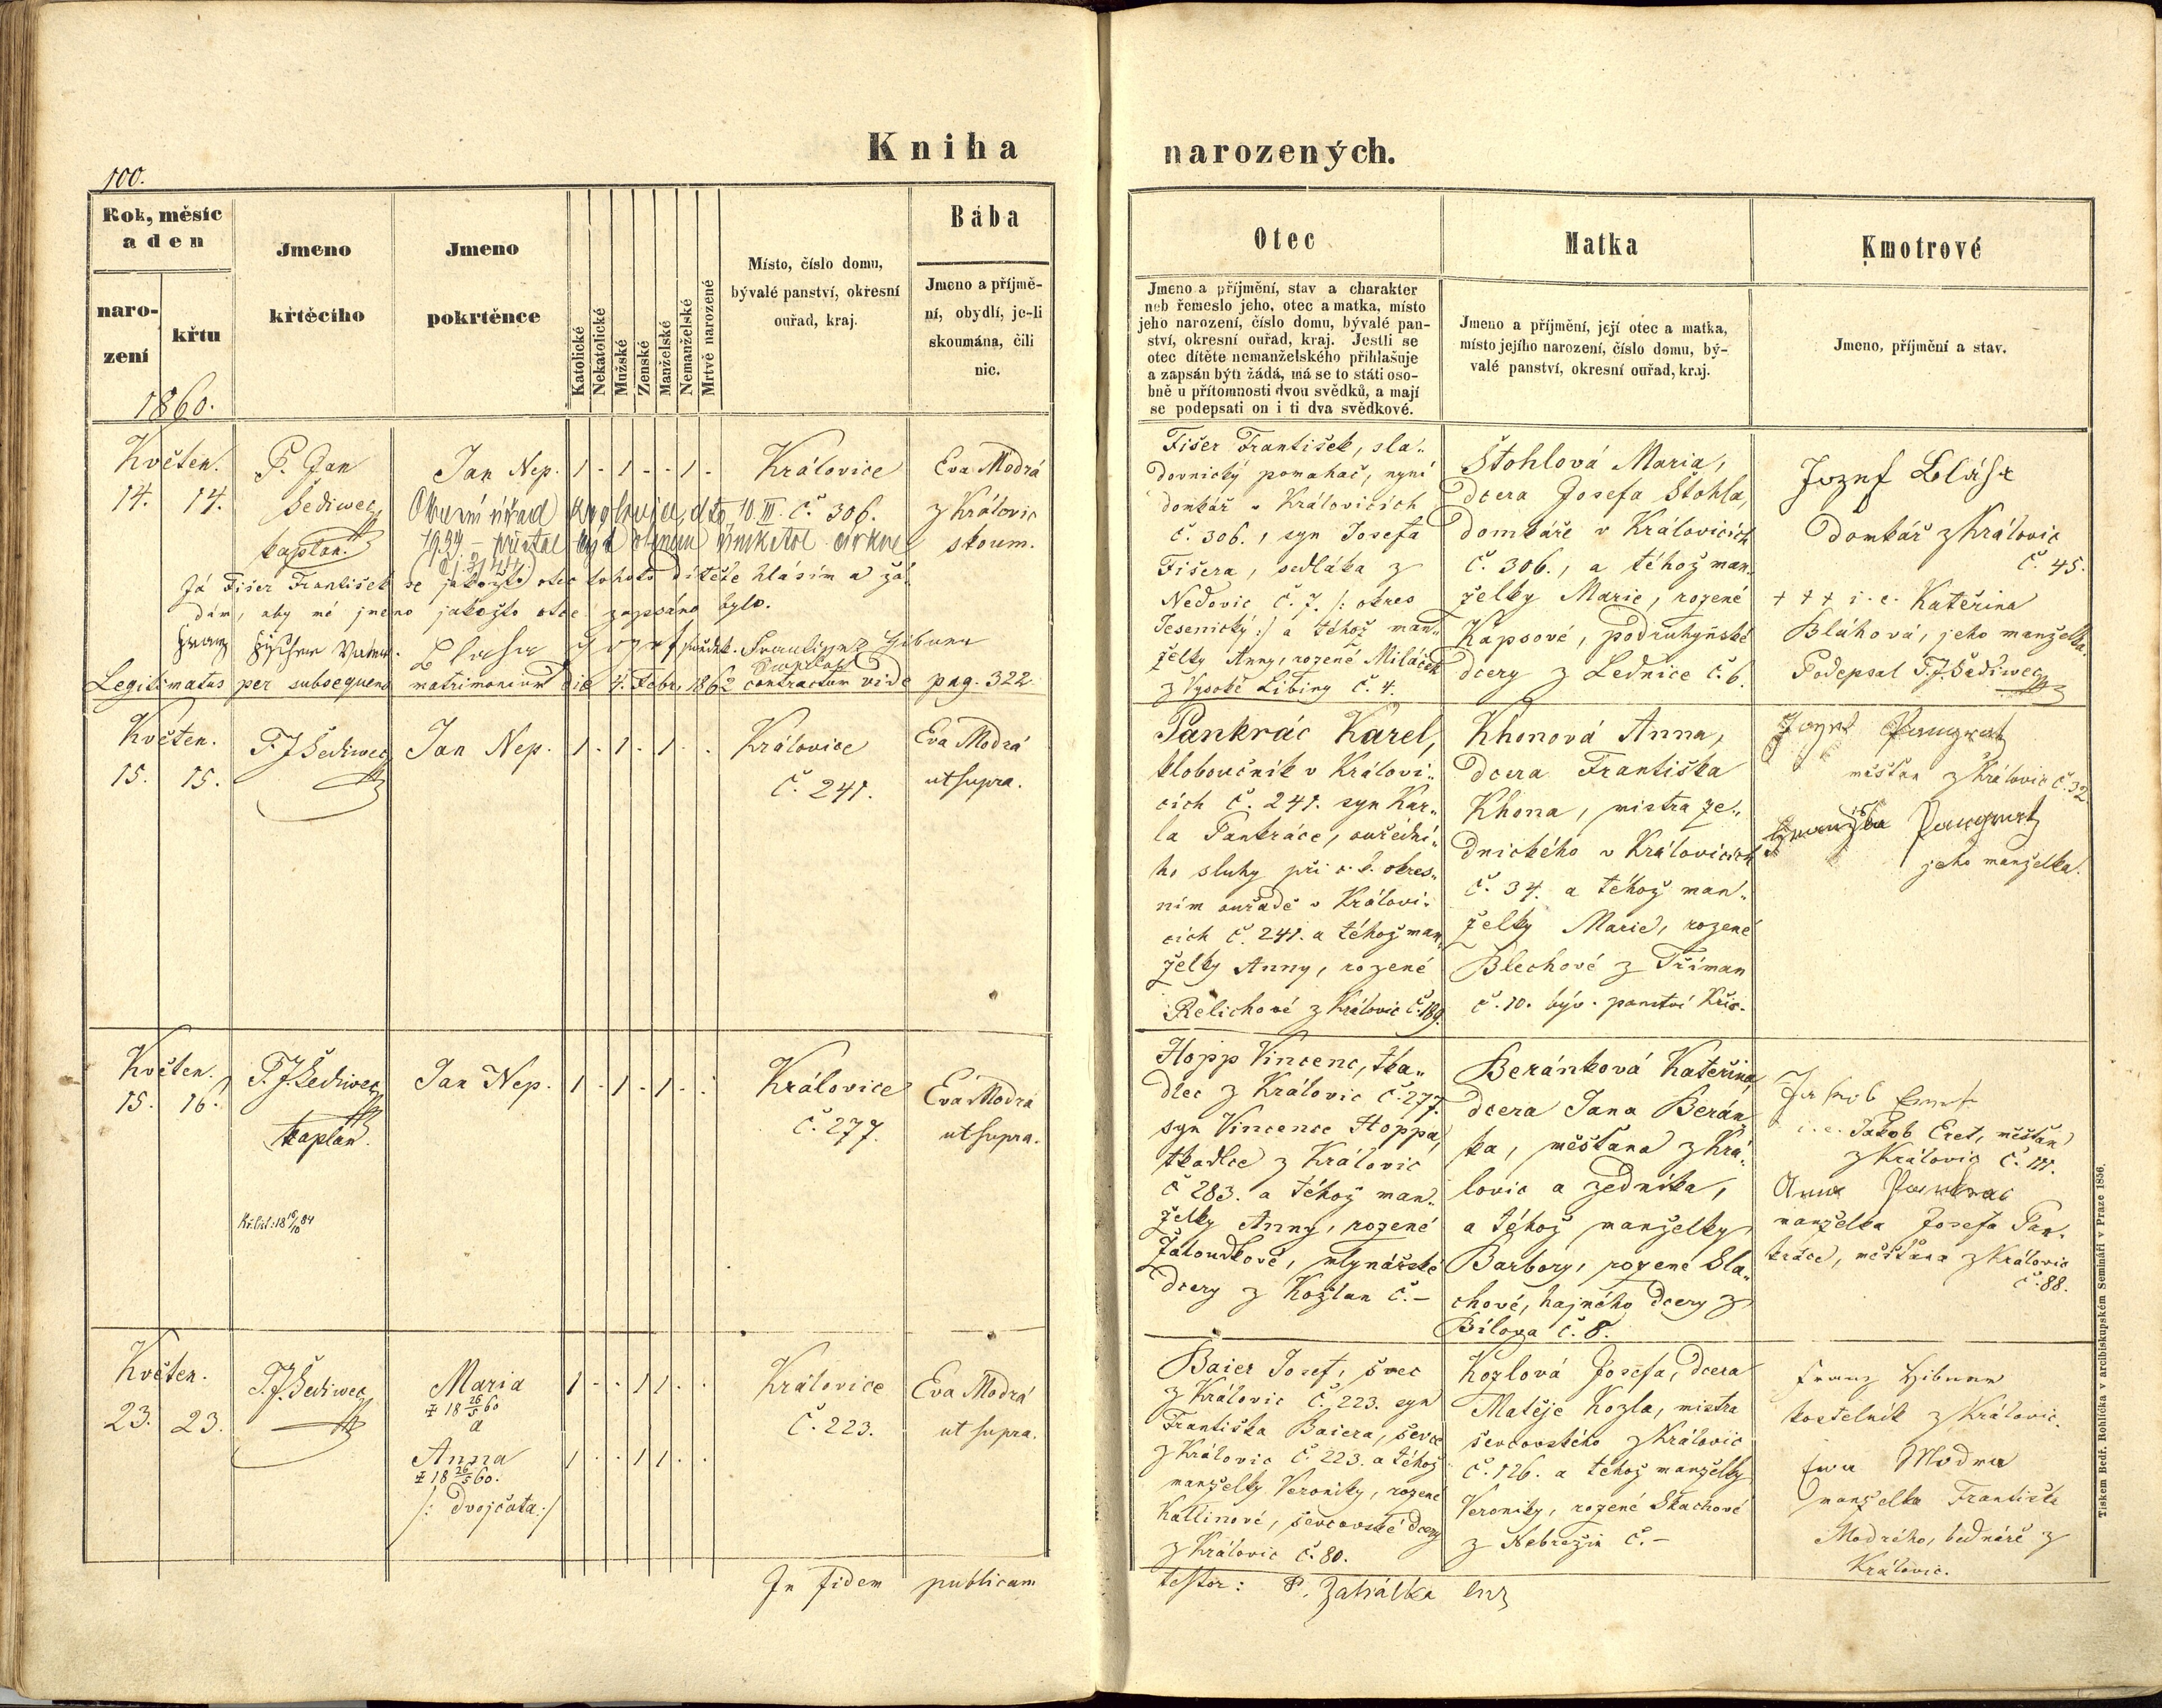 Kniha
narozených.
100.
Rok, měsíc
a den
naro-
zení
křtu
1860.
Jmeno
křtěcího
Jmeno
pokrtěnce
Katolické
Nekatolické
Mužské
Ženské
Manželské
Nemanželské
Mrtvě narozené
Místo, číslo domu,
bývalé panství, okresní
ouřad, kraj.
Bába
Jmeno a příjmě-
ní, obydlí, je-li
skoumána, čili
nic.
Otec
Jmeno a příjmění, stav a charakter
neb řemeslo jeho, otec a matka, místo
jeho narození, číslo domu, bývalé pan-
ství, okresní ouřad, kraj. Jestli se
otec dítěte nemanželského přihlašuje
a zapsán býti žádá, má se to státi oso-
bně u přítomnosti dvou svědků, a mají
se podepsati on i ti dva svědkové.
Matka
Jmeno a příjmění, její otec a matka,
místo jejího narození, číslo domu, bý-
valé panství, okresní ouřad, kraj.
Kmotrové
Jmeno, příjmění a stav.
Květen.
14. 14.
P. Jan
Šediwec
kaplan.
Jan Nep.
1 - 1 - - 1 -
Královice
Eva Modrá
z Královic
skoum.
10. III. č. 306.
1939
Já Fišer František se jakožto otec tohoto dítěte hlásím a žá-
dám, aby mé jmeno jakožto otce zapsáno bylo.
Legitimatus per subsequens matrimonium die 4. Febr. 1862 contractum vide pag. 322
Fišer František, sla-
dovnický pomahač, nyní
domkář v Královicích
č. 306., syn Josefa
Fišera, sedláka z
Nedovic č. 7. /: okres
Jesenický :/ a téhož man-
želky Anny, rozené Miláček
z Vysoké Libiny č. 4.
Štohlová Maria,
dcera Josefa Štohla,
domkáře v Královicích
č. 306., a téhož man-
želky Marie, rozené
Kapsové, podruhyňské
dcery z Lednice č. 6.
Jozef Blaha
Domkář z Královic
č. 45.
+ + + i. e. Kateřina
Bláhová, jeho manželka.
Podepsal P. J. Šediwec
Květen.
15. 15.
P. J. Šediwec
Jan Nep.
1 - 1 - 1 - -
Královice
č. 241.
Eva Modrá
ut supra.
Pankrác Karel,
kloboučník v Královi-
cích č. 241. syn Kar-
la Pankráce, ouřední-
ho sluhy při c. k. okres-
ním ouřadě v Královi-
cích č. 241. a téhož man-
želky Anny, rozené
Relichové z Královic č. 189.
Khonová Anna,
dcera Františka
Khona, mistra ze-
dnického v Královicích
č. 34. a téhož man-
želky Marie, rozené
Blechové z Tříman
č. 10. býv. panství Křic.
Jozef Pangratz
měšťan z Královic č. 32
Pangratz
jeho manželka.
Květen.
15. 16.
P. J. Šediwec
kaplan.
Jan Nep.
1 - 1 - 1 - -
Královice
č. 277.
Eva Modrá
ut supra.
Hopp Vincenc, tka-
dlec z Královic č. 277.
syn Vincence Hoppa,
tkadlce z Královic
č 283. a téhož man-
želky Anny, rozené
Žaloudkové, mlynářské
dcery z Kožlan č. -
Beránková Kateřina
dcera Jana Berán-
ka, měšťana z Krá-
lovic a zedníka,
a téhož manželky
Barbory, rozené Sla-
chové, hajného dcery z
Bílova č. 8.
i. e. Jakob Eret, měšťan
z Královic č. 111.
Anna Pankrac
manželka Josefa Pan-
kráce, měšťana z Královic
č. 88.
Květen.
23. 23.
P. J. Šediwec
Maria
‡ 18 26/5 60
a
Anna
‡ 18 26/5 60.
/: dvojčata :/
1 - - 1 1 - -
1 - - 1 1 - -
Královice
č. 223.
Eva Modrá
ut supra.
Baier Josef, švec
z Královic č. 223. syn
Františka Baiera, ševce
z Královic č. 223. a téhož
manželky Veroniky, rozené
Kallinové, ševcovské dcery
z Královic č. 80.
Kozlová Josefa, dcera
Matěje Kozla, mistra
ševcovského z Královic
č. 126. a téhož manželky
Veroniky, rozené Skachové
z Nebřezin č. -
Franz Hibner
kostelník z Královic.
Ewa Modra
manželka Františka
Modrého, bednáře z
Královic.
In fidem publicam
testor: P. Zahálka
Tiskem Bedř. Rohlíčka v arcibiskupském Semináři v Praze 1856.